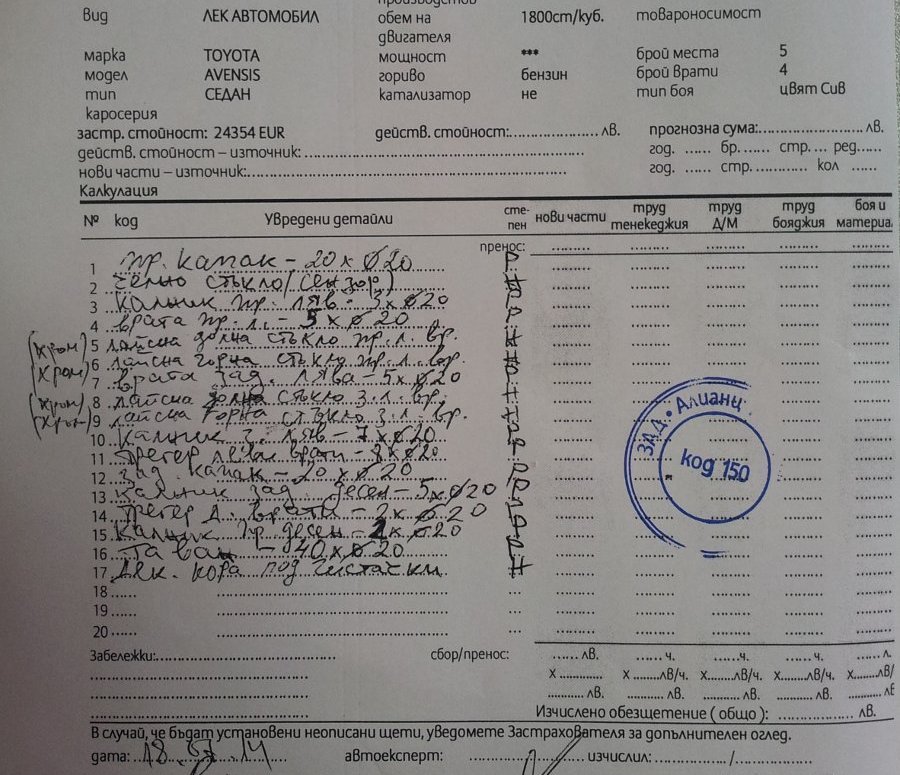 Вид ЛЕК АВТОМОБИЛ обем на 1800cm/куб. товароносимост
двигателя
марка TOYOTA мощност *** брой места 5
модел AVENSIS гориво бензин брой врати 4
тип СЕДАН катализатор не тип боя цвят Сив
каросерия
застр. стойност: 24354 EUR действ. стойност: лв. прогнозна сума: лв.
действ. стойност – източник: год. бр. стр. ред.
нови части – източник: год. стр. кол
Калкулация
№ код Увредени детайли сте- нови части труд труд труд боя и
пен тенекеджия Д/М бояджия материа
пренос:
1 пр. капак - 20 x ø20 Р
2 челно стъкло/сензор/ Н
3 калник пр. ляв - 3 x ø20 Р
4 врата пр. л. - 5 x ø20 Р
(хром) 5 лайсна долна стъкло пр. л. вр. Н
(хром) 6 лайсна горна стъкло пр. л. вр. Н
7 врата зад. лява - 5x ø20 Р
(хром) 8 лайсна долна стъкло з. л. вр. Н
(хром) 9 лайсна горна стъкло з. л. вр. Н
10 калник з. ляв - 7 x ø20 Р
11 леви врати - 8 x ø20 Р
12 зад. капак - 20 x ø20 Р
13 калник зад. десен - 5x ø20 Р
14 д. врати - 2x ø20 Р
15 калник пр. десен - x ø20 Р
16 таван - 40 x ø20 Р
17 дек. кора под чистачки Н
18
19
20
Забележки: сбор/пренос: лв. ч. ч. ч. л.
х х лв/ч. х лв/ч. х лв/ч. х лв/
лв. лв. лв. лв. лв
Изчислено обезщетение ( общо ): лв.
В случай, че бъдат установени неописани щети, уведомете Застрахователя за допълнителен оглед.
дата: автоексперт: изчислил: /
ЗАД • Алианц
код 150